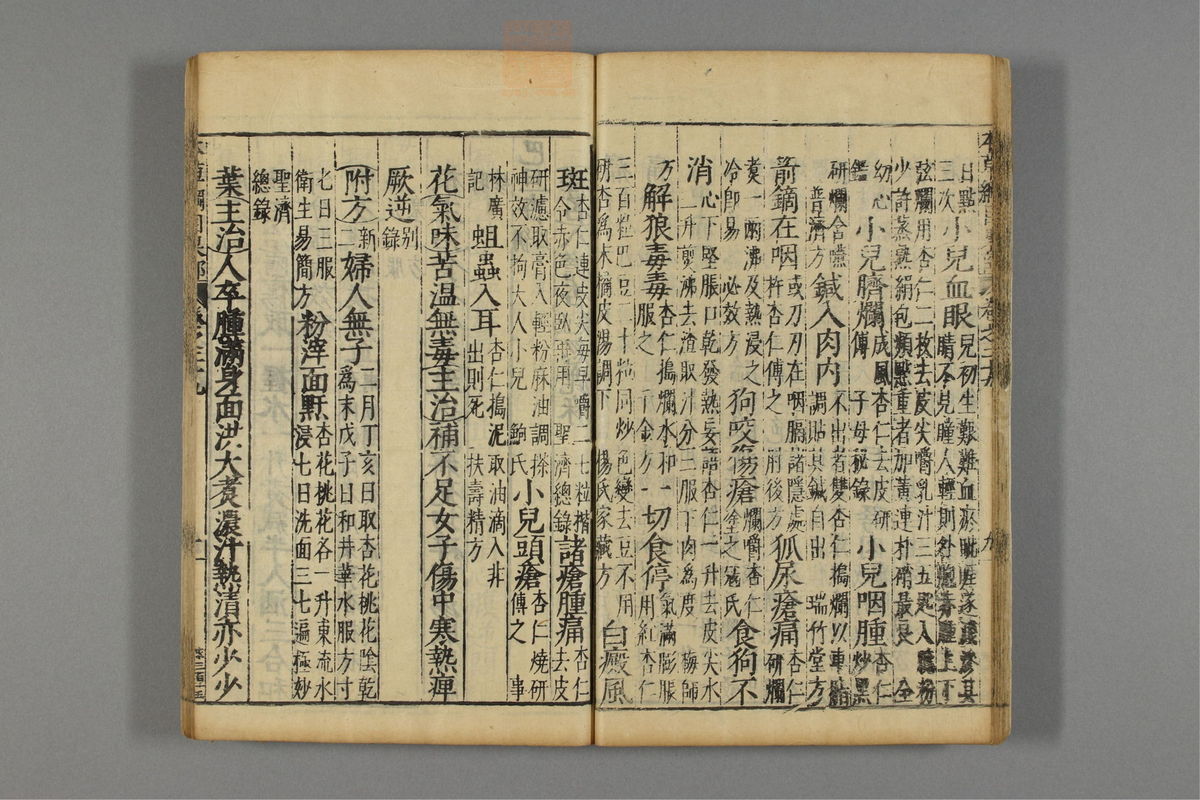 三次
小兒血眼兒初生艱難血
弦爛用杏仁二枚去皮尖嚼乳汁三五匙入
少許蒸熱絹包頻點重者加黃連朴硝最良 全
幼心
小兒臍爛成風杏仁去皮研
傅 子母秘錄
小兒咽腫杏仁炒黑
研爛含嚥 普濟方
鍼入肉内不出者雙杏仁搗爛以車脂
調貼其鍼自出 瑞竹堂方
箭鏑在咽或刀刃在咽膈諸隱處
杵杏仁傅之 肘後方
狐尿瘡痛杏仁研爛
煑一兩沸及熱浸之
冷即易 必效方
狗咬傷瘡爛嚼杏仁
塗之寇氏
食狗不
消心下堅脹口乾發熱妄語杏仁一升去皮尖水
三升煎沸去渣取汁分三服下肉爲度 梅師
方
解狼毒毒杏仁搗爛水和
服之 千金方
一切食停氣滿膨脹
用紅杏仁
三百粒巴豆二十粒同炒色變去豆不用
研杏爲末橘皮湯調下 楊氏家藏方
白癜風
斑杏仁連皮尖每早嚼二七粒揩
令赤色夜臥再用 聖濟總錄
諸瘡腫痛杏仁
去皮
研濾取膏入輕粉麻油調搽
神效不拘大人小兒 鮑氏
小兒頭瘡杏仁燒研
傅之 事
林廣
記
蛆蟲入耳杏仁搗泥取油滴入非
出則死 扶壽精方
花氣味苦溫無毒主治補不足女子傷中寒熱痹
厥逆別
錄
附方新
二
婦人無子二月丁亥日取杏花桃花陰乾
爲末戊子日和井華水服方寸
七日三服
衛生易簡方
粉滓面䵟杏花桃花各一升東流水
浸七日洗面三七遍極妙
聖濟
總錄
葉主治人卒腫滿身面洪大煑濃汁熱漬亦少少